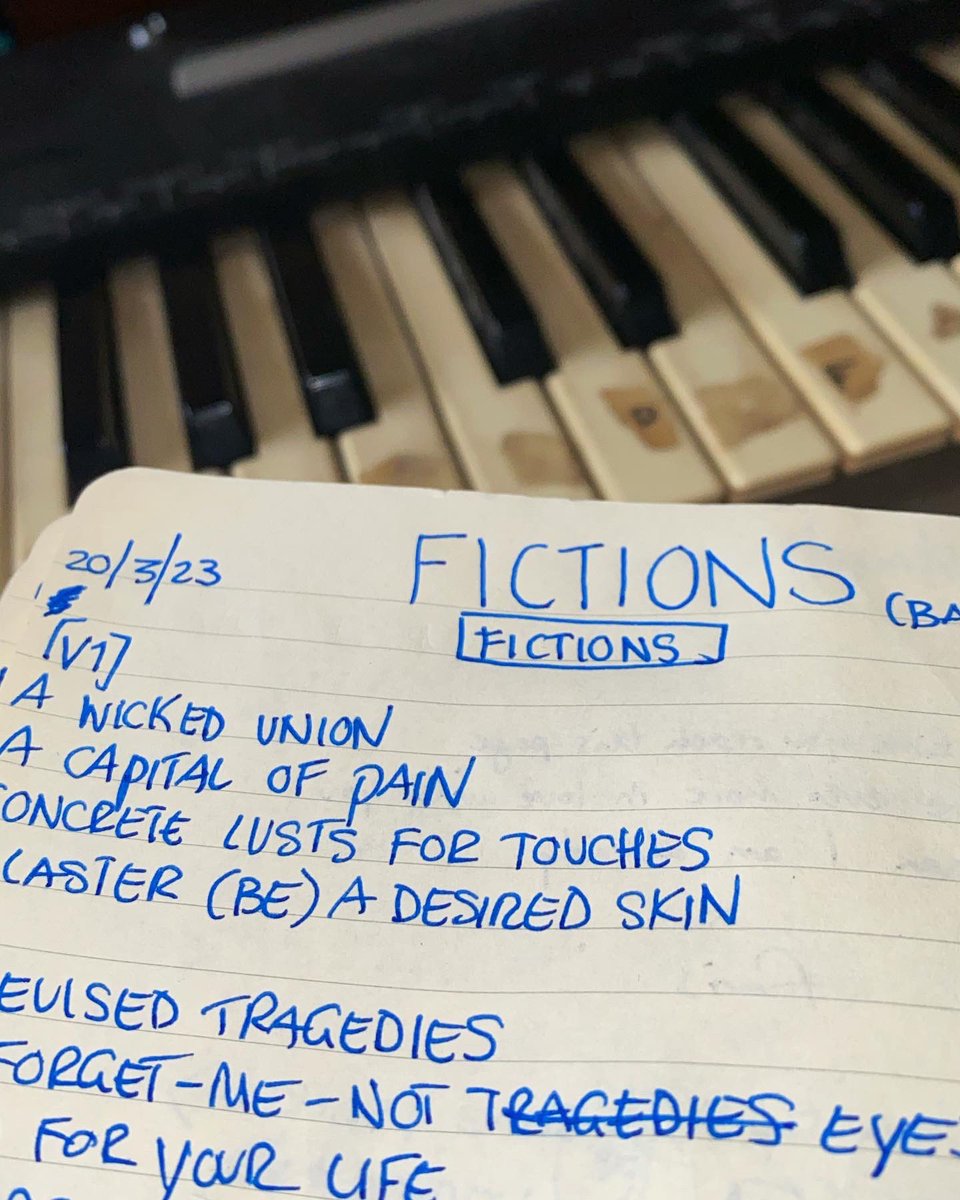 20/3/23
FICTIONS
(BA
FICTIONS
[V1]
A WICKED UNION
A CAPITAL OF PAIN
CONCRETE LUSTS FOR TOUCHES
LASTER (BE) A DESIRED SKIN
EVISED TRAGEDIES
FORGET-ME-NOT TRAGEDIES EYES
FOR YOUR LIFE
D